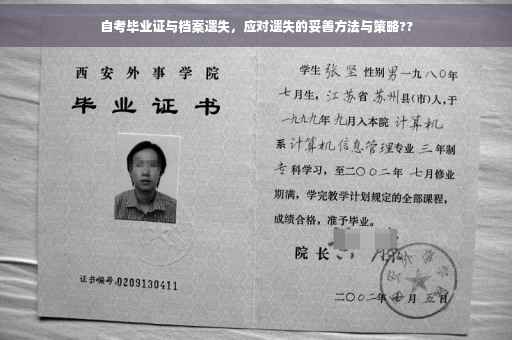 自考毕业证与档案遗失，应对遗失的妥善方法与策略??
西安外事学院
毕业证书
证书编号:0209130411
学生 张坚 性别 男 一九八〇年
七月生，江苏省苏州县(市)人，于
一九九九年 九月入本院 计算机
系 计算机信息管理专业 三 年制
专科学习，至二〇〇二年 七月修业
期满，学完教学计划规定的全部课程，
成绩合格，准予毕业。
院长
二〇〇二年 月五日